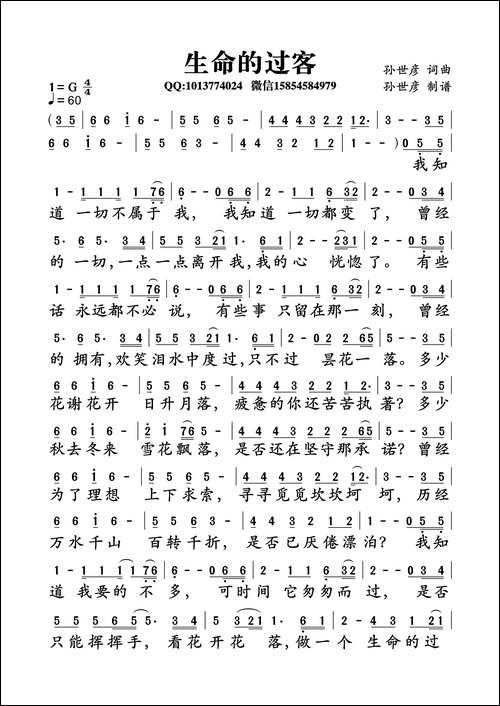 生命的过客
QQ:1013774024 微信15854584979
1=G 4/4
♩=60
孙世彦 词曲
孙世彦 制谱
(3 5 | 6 6 i 6 - | 5 5 6 5 - | 4 4 4 3 2 2 1 2· | 3 - - 3 5 |
6 6 i 6 - | 5 5 6 3 - | 4 4 3 2 1 2 | 1 - - ) 0 5 5 |
我知
1 - 1 1 1 1 7 6 | 6 - - 0 6 6 | 1 - 1 1 1 6 3 2 | 2 - - 0 3 4 |
道 一切不属于 我, 我知道 一切都变 了, 曾经
5· 6 5· 3 4 | 5 5 3 2 1 1· 6 1 | 2 - - 2 3 1 | 2 - - 0 5 5 |
的 一切,一点一点离开我,我的心 恍惚了。有些
1 - 1 1 1 1 7 6 | 6 - - 0 6 6 | 1 - 1 1 1 6 3 2 | 2 - - 0 3 4 |
话 永远都不必 说, 有些事 只留在那一 刻, 曾经
5· 6 5· 3 4 | 5 5 3 2 1 1· 6 1 | 2 - 0 2 2 6 5 | 1 - - 3 5 |
的 拥有,欢笑泪水中度过,只不过 昙花一 落。多少
6 6 i 6 - | 5 5 6 5 - | 4 4 4 4 3 2 2 1 2· | 3 - - 3 5 |
花谢花开 日升月落, 疲惫的你还苦苦执 著? 多少
6 6 i 6 - | 2 i 7 6 5 - | 4 4 4 4 3 2 2 2 6 5 | 5 - - 3 5 |
秋去冬来 雪花飘落, 是否还在坚守那承 诺? 曾经
6 6 i 6 - | 5 5 6 5 - | 4 4 4 4 3 2 2 1 2· | 3 - - 3 5 |
为了理想 上下求索, 寻寻觅觅坎坎坷 坷, 历经
6 6 i 6 - | 5 5 6 3 - | 4 4 3 2 1 2 | 1 - - 0 5 5 |
万水千山 百转千折, 是否已厌倦漂泊? 我知
1 - 1 1 1 1 7 6 | 6 - - 0 6 6 | 1 - 1 1 1 6 3 2 | 2 - - 0 3 4 |
道 我要的 不 多, 可时间 它匆匆而 过, 是否
5 5 5 6 5 3 4 | 5 3 2 1 1· 6 1 | 2 - 0 2 2 6 5
只能挥挥手, 看花开花 落,做一个 生命的过